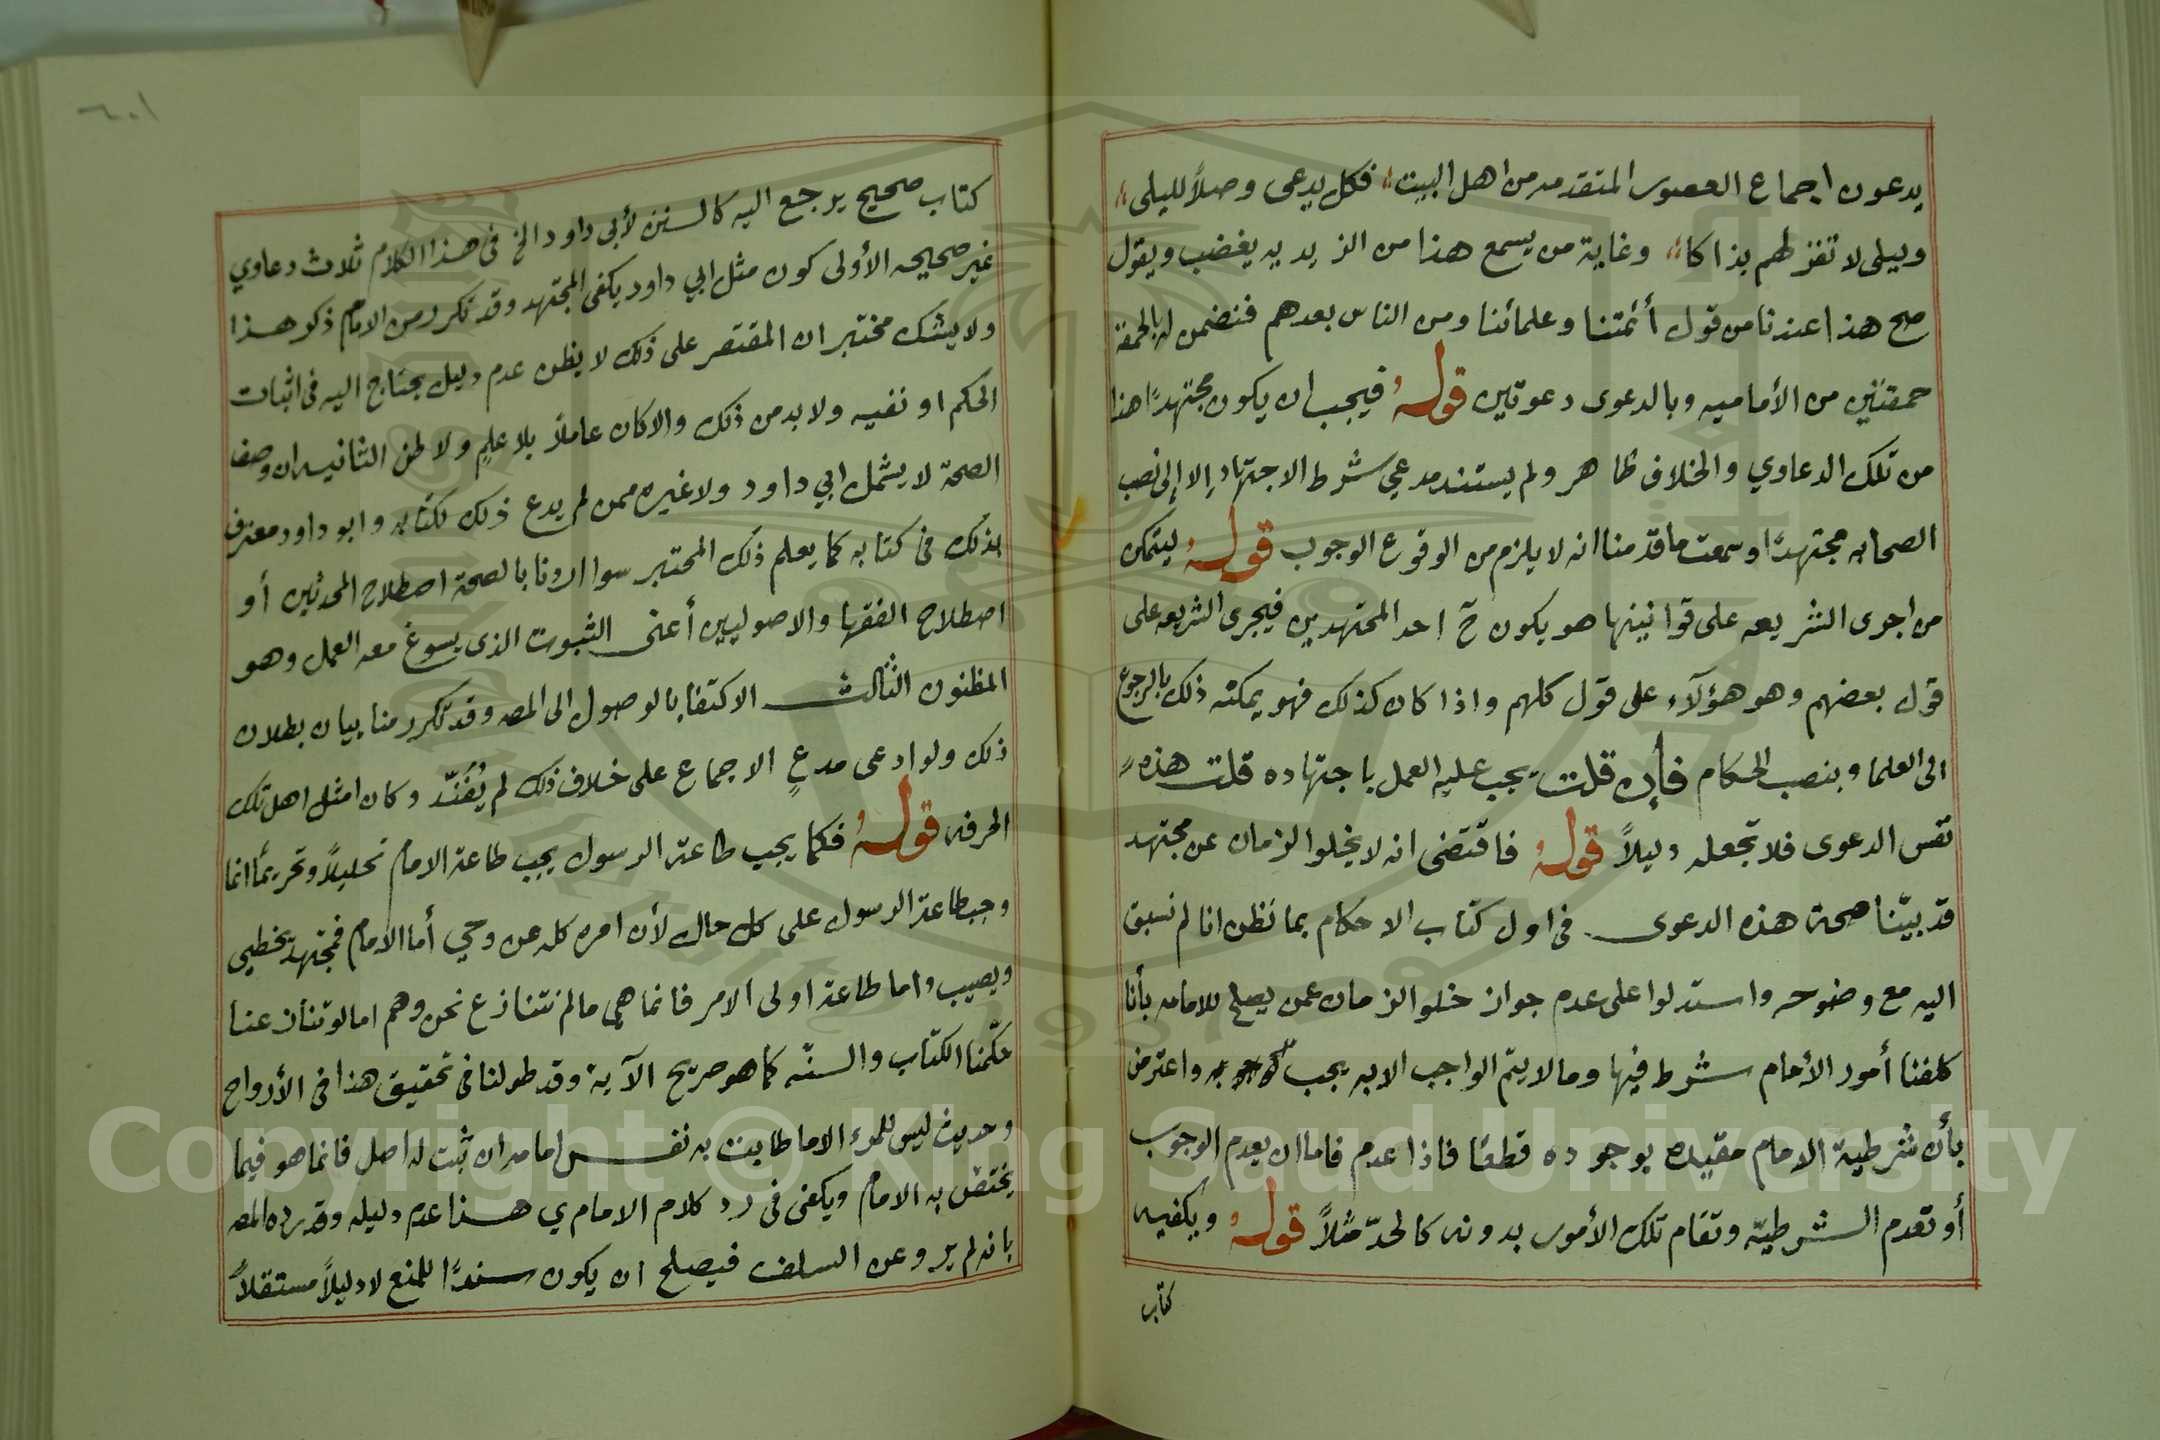 يدعون اجماع العصور المتقدمه من اهل البيت فكل يدعى وصلاً لليلى
وليلى لا تقر لهم بذاكا وغاية من يسمع هذا من الزيديه يغضب ويقول
صح هذا عندنا من قول أئمتنا وعلمائنا ومن الناس بعدهم فنضمن له بالحمقة
حمقتين من الأماميه وبالدعوى دعوتين قوله فيجب ان يكون مجتهدًا هذا
من تلك الدعاوي والخلاف ظاهر ولم يستند مدعي شرط الاجتهاد إلا إلى نصب
الصحابه مجتهدًا وسمعت ما قدمنا انه لا يلزم من الوقوع الوجوب قوله ليتمكن
من اجرى الشريعه على قوانينها هو يكون ح احد المجتهدين فيجرى الشريعه على
قول بعضهم وهو هؤلآء على قول كلهم واذا كان كذلك فهو يمكنه ذلك بالرجوع
الى العلما وبنصب الحكام فإن قلت يجب عليه العمل باجتهاده قلت هذه
نفس الدعوى فلا تجعله دليلاً قوله فاقتضى انه لا يخلوا الزمان عن مجتهد
قد بيّنا صحة هذه الدعوى في اول كتاب الاحكام بما نظن انا لم نسبق
اليه مع وضوحه واستدلوا على عدم جواز خلو الزمان عمن يصلح للامامه بأنا
كلفنا أمور الأمام شرط فيها وما لا يتم الواجب الا به يجب واعترض
بأن شرطية الامام مقيده بوجوده قطعًا فاذا عدم فاما ان يعدم الوجوب
أو تعدم الشرطيّه وتقام تلك الأمور بدونه كالحدّ مثلاً قوله ويكفيه
كتاب
٦٠١
كتاب صحيح يرجع اليه كالسنن لأبي داود الخ في هذا الكلام ثلاث دعاوي
غير صحيحه الأولى كون مثل ابي داود يكفى المجتهد وقد تكرر من الامام ذكر هذا
ولا يشك مختبر ان المقتصر على ذلك لا يظن عدم دليل يحتاج اليه في اثبات
الحكم او نفيه ولا بد من ذلك والا كان عاملاً بلا علمٍ ولا ظن الثانيه ان وصف
الصحة لا يشمل ابي داود ولا غيره ممن لم يدع ذلك لكتابه وابو داود معترف
بذلك في كتابه كما يعلم ذلك المختبر سوا اردنا بالصحة اصطلاح المحدثين أو
اصطلاح الفقها والاصوليين أعنى الثبوت الذى يسوغ معه العمل وهو
المظنون الثالث الاكتفا بالوصول الى المصه وقد تكرر منا بيان بطلان
ذلك ولو ادعى مدعٍ الاجماع على خلاف ذلك لم يُفَنّد وكان امثل اهل تلك
الحرفه قوله فكما يجب طاعة الرسول يجب طاعة الامام تحليلاً وتحريمًا انما
وجب طاعة الرسول على كل حال لأن امره كله عن وحي أما الامام فمجتهد يخطي
ويصيب واما طاعة اولى الامر فانما هي ما لم نتنازع نحن وهم اما لو تنازعنا
حكّمنا الكتاب والسنّه كما هو صريح الآية وقد طولنا في تحقيق هذا في الأرواح
وحديث ليس للمرء الا ما طابت به نفس امامه ان ثبت له اصل فانما هو فيما
يختص به الامام ويكفى في رد كلام الامام ي هذا عدم دليله وقد رده المصه
بانه لم يرو عن السلف فيصلح ان يكون سندًا للمنع لا دليلاً مستقلاً
Copyright © King Saud University